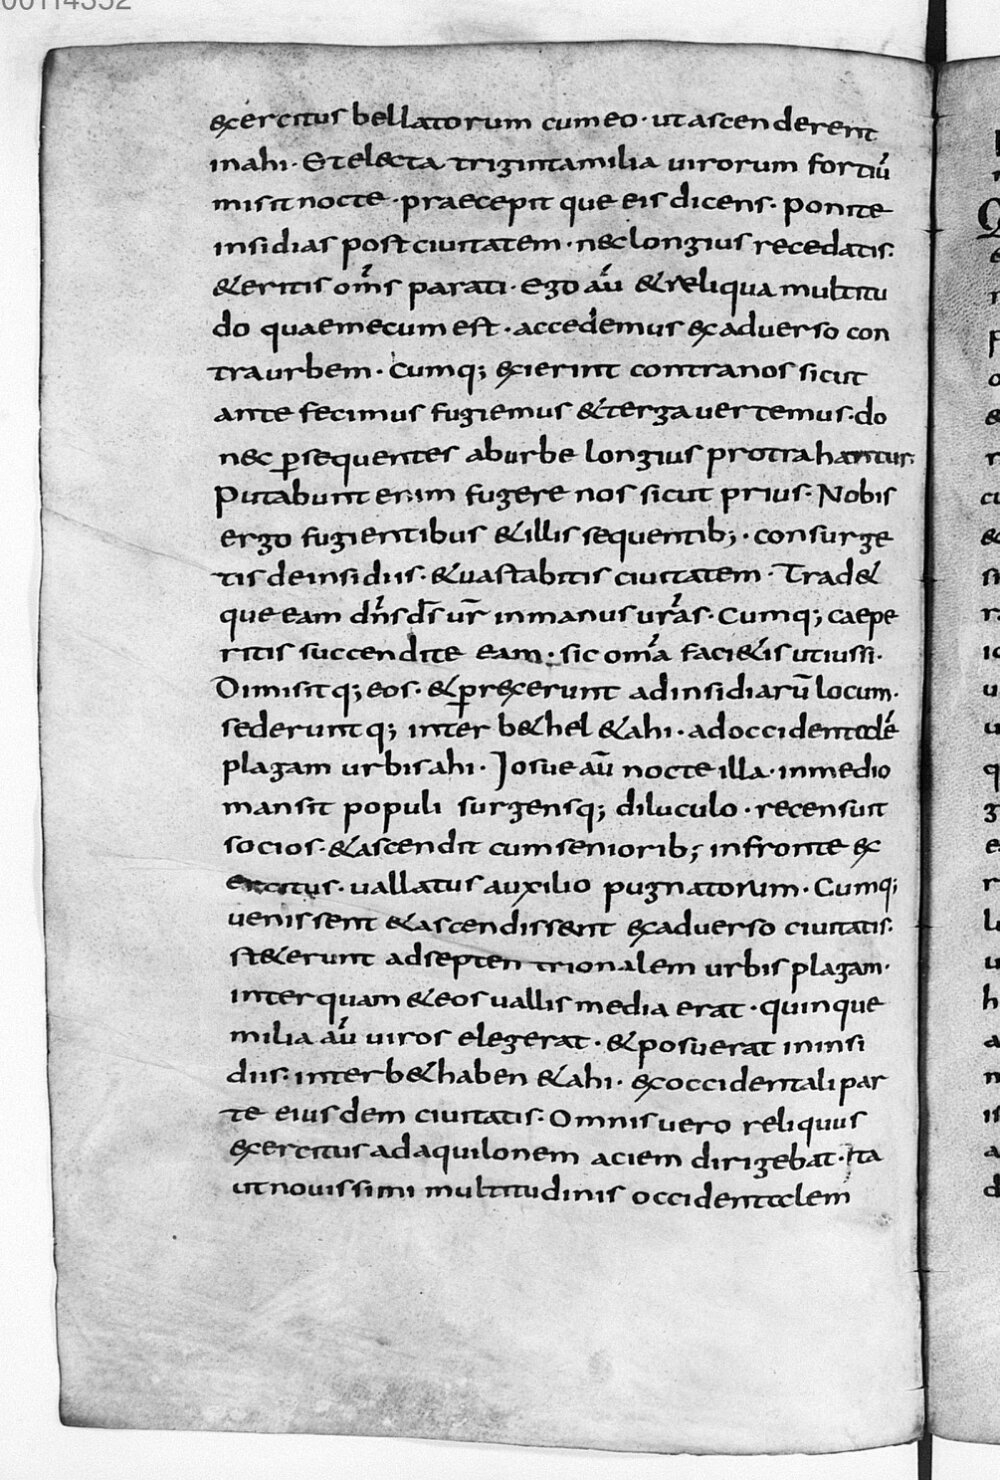 00114352
exercitus bellatorum cum eo · ut ascenderent
in ahi · Et electa triginta milia uirorum fortiū
misit nocte · praecepit que eis dicens · Ponite
insidias post ciuitatem · nec longius recedatis ·
& eritis om̅s parati · Ego aū & reliqua multitu
do quae mecum est · accedemus ex aduerso con
tra urbem · Cumq; exierint contra nos sicut
ante fecimus fugiemus & terga uertemus · do
nec ꝑsequentes ab urbe longius protrahantur ·
Putabunt enim fugere nos sicut prius · Nobis
ergo fugientibus & illis sequentib; · consurge
tis de insidiis · & uastabitis ciuitatem · Trad&
que eam dn̅s d̅s ur̅ in manus ur̅as · Cumq; caepe
ritis succendite eam · sic om̅a faci&is ut iussi ·
Dimisitq; eos · & ꝑrexerunt ad insidiarū locum ·
sederuntq; inter b&hel & ahi · ad occidentalē
plagam urbis ahi · Iosue aū nocte illa · in medio
mansit populi surgensq; diluculo · recensuit
socios · & ascendit cum seniorib; in fronte ex
ercitus · uallatus auxilio pugnatorum · Cumq;
uenissent & ascendissent ex aduerso ciuitatis ·
st&erunt ad septentrionalem urbis plagam ·
inter quam & eos uallis media erat · quinque
milia aū uiros elegerat · & posuerat in insi
diis · inter b&haben & ahi · ex occidentali par
te eiusdem ciuitatis · Omnis uero reliquus
exercitus ad aquilonem aciem dirigebat · ita
ut nouissimi multitudinis occidentalem